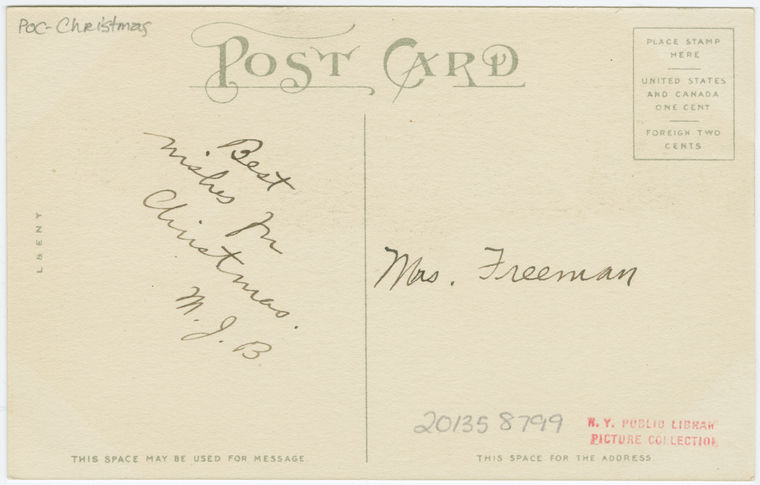 POC-Christmas
POST CARD
PLACE STAMP
HERE
UNITED STATES
AND CANADA
ONE CENT
FOREIGN TWO
CENTS
Best
wishes for
Christmas.
M. J. B.
L&ENY
Mrs. Freeman
201358799
N. Y. PUBLIC LIBRARY
PICTURE COLLECTION
THIS SPACE MAY BE USED FOR MESSAGE
THIS SPACE FOR THE ADDRESS